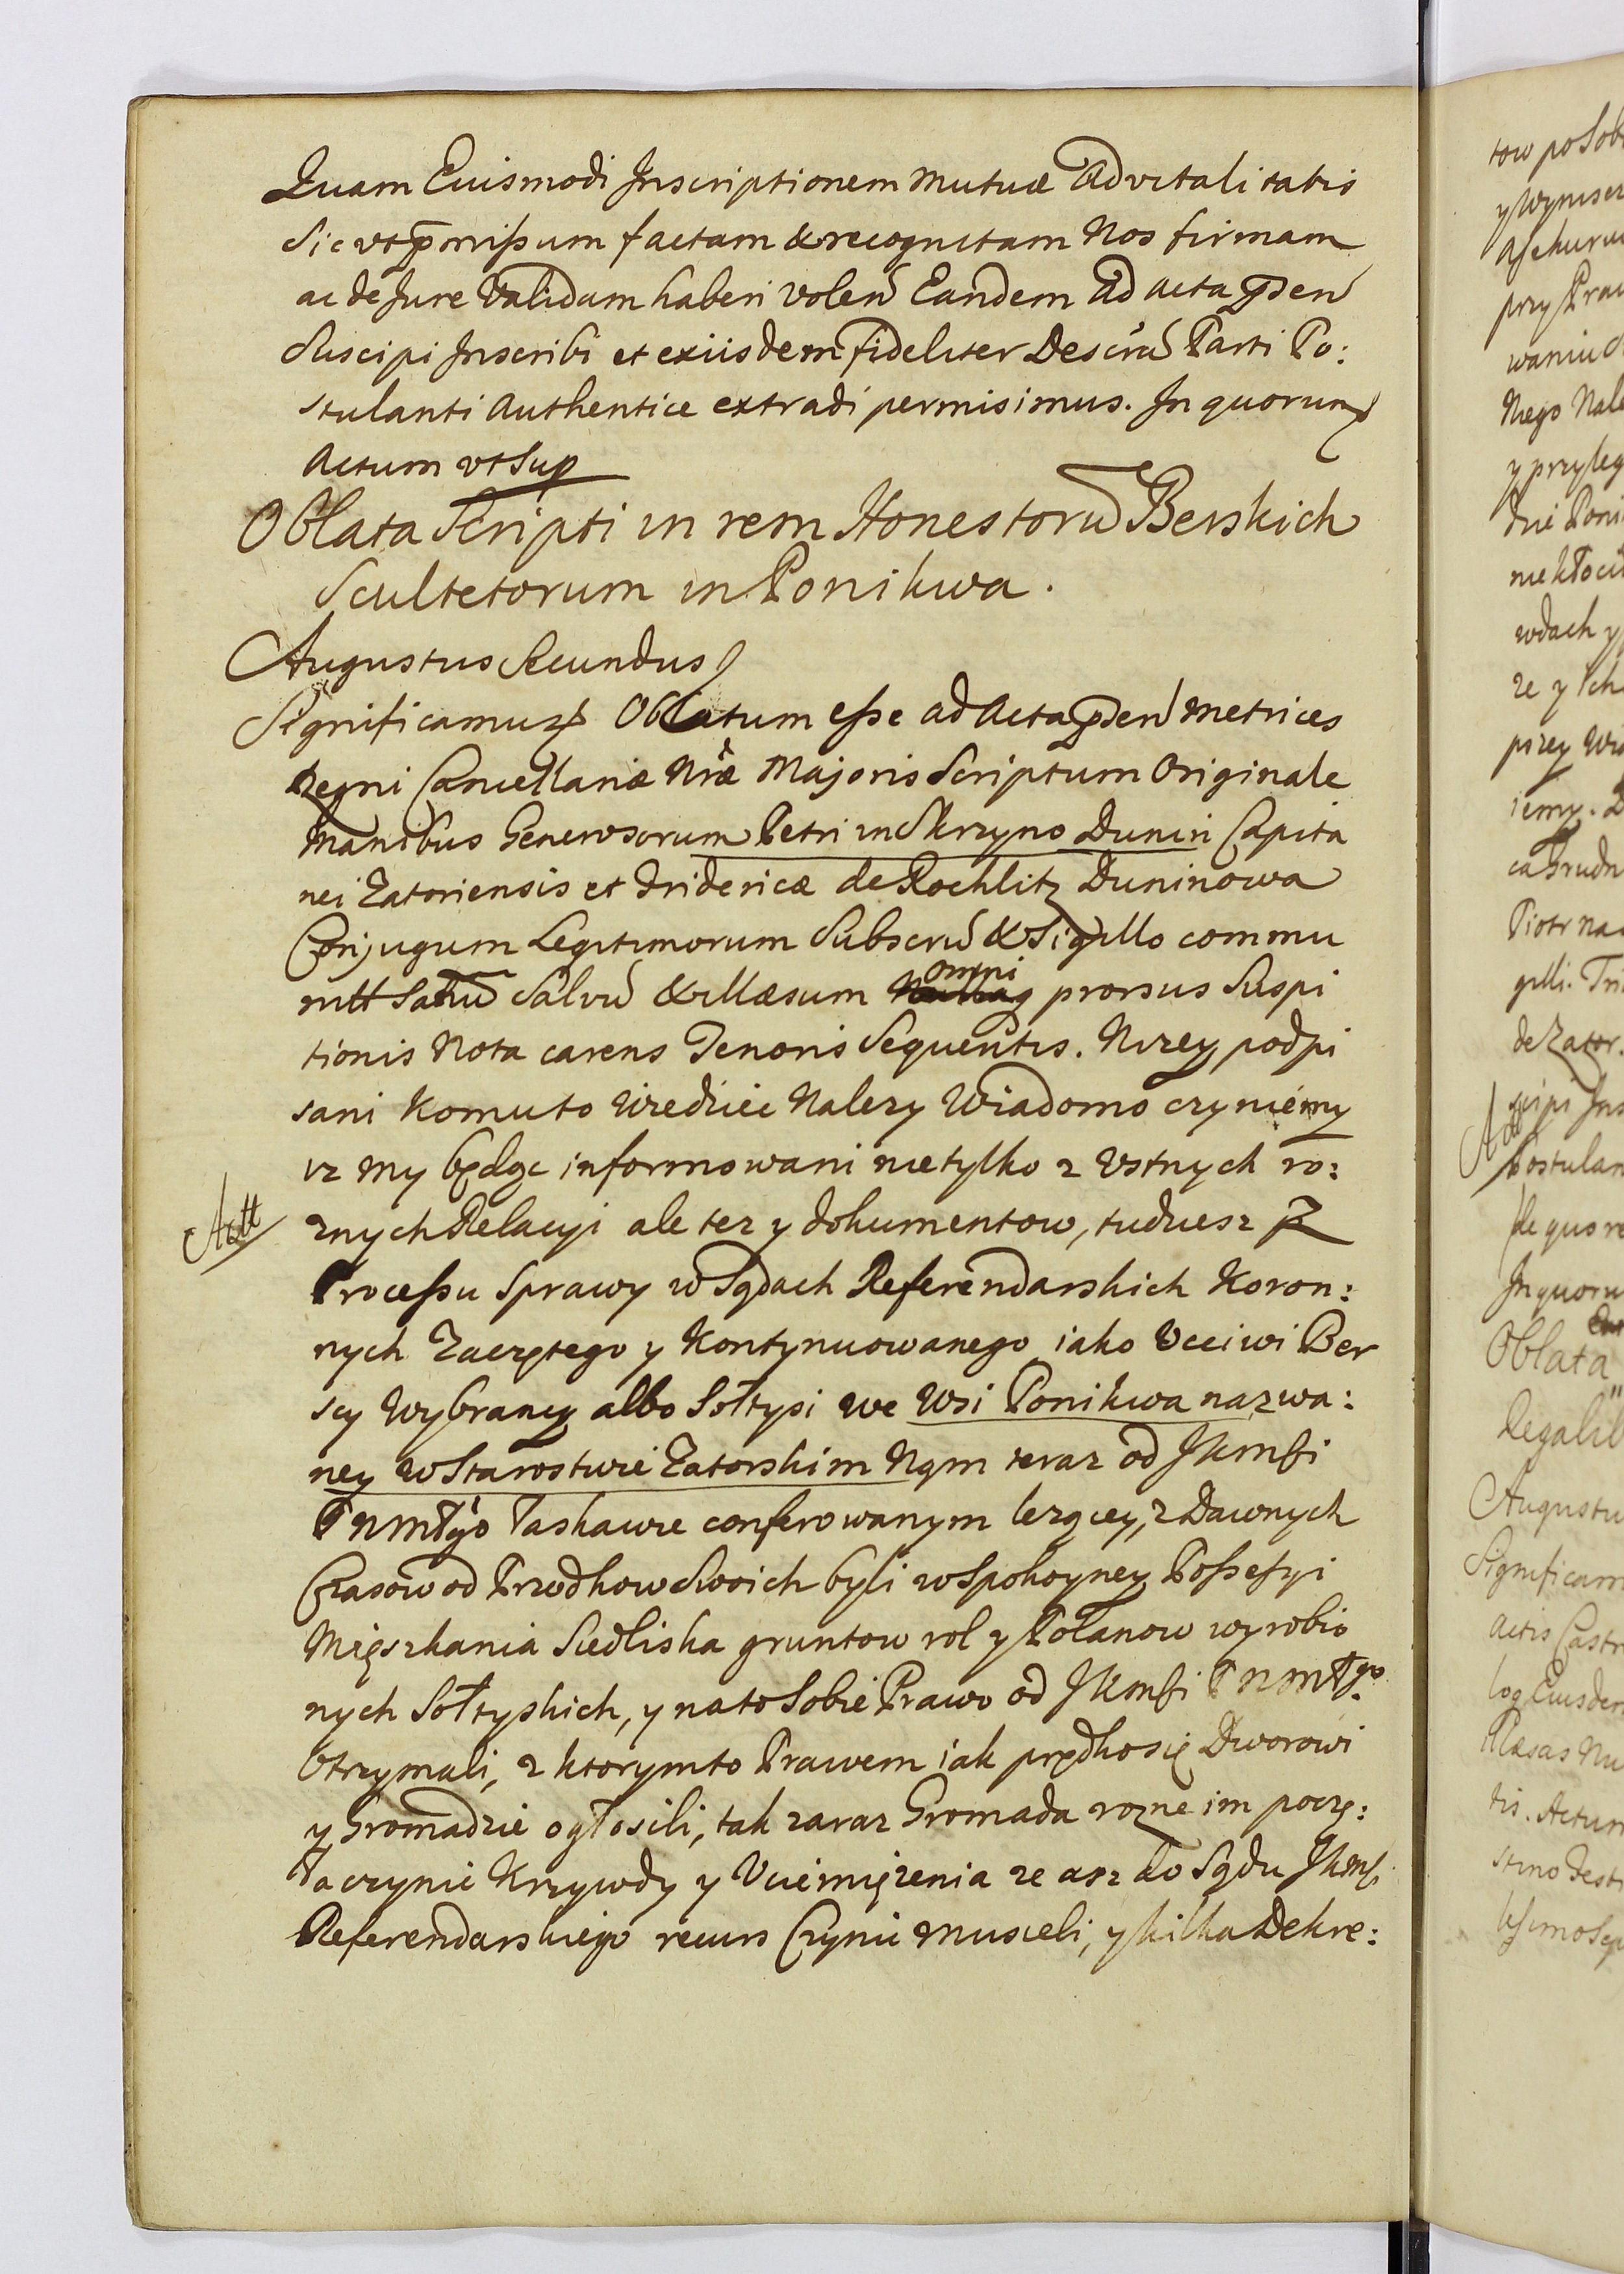 Quam Euismodi Inscriptionem mutuæ Advitalitatis
Sic vt p̄mißum factam & recognitam Nos firmam
ac de Jure Validam haberi volen Eandem Ad acta p̄sen
Suscipi Inscribi et exiisdem fideliter Descrū Parti Po:
stulanti Authentice extradi permisimus. In quorum
Actum vt Sup
Oblata Scripti in rem Honestorū Berskich
Scultetorum in Ponikwa.
Augustus Secundus
Significamus Oblatum eße ad Acta p̄sen metrices
Regni Cancellariæ Nræ Majoris Scriptum Originale
Manibus Generosorum Petri in Skrzyno Dunin Capita
nei Zatoriensis et Fridericæ de Rochlitz Duninowa
Conjugum Legitimorum Subscrū & Sigillo commu
nitt Satū Salvū & illæsum omni prorsus Suspi
tionis Nota carens Tenoris Sequentis. Nizey podpi
sani Komuto Wiedziec Nalezy Wiadomo czyniemy
iz My będąc informowani nietylko z Vstnych ro:
Actt
znych Relacyi ale tez y dokumentow, tudziesz z
Proceßu Sprawy w Sądach Referendarskich Koron:
nych Zaczętego y Kontynuowanego iako Vcciwi Ber
scy Wybrancy albo Sołtysi we Wsi Ponikwa nazwa:
ney w Starostwie Zatorskim Nąm teraz od JKmsi
PNMłgo Łaskawie conferowanym lezącey, z Dawnych
Czasow od Przodkow Swoich byli w Spokoyney Poßeßyi
Mięszkania Siedliska gruntow rol y Polanow wyrobio
nych Sołtyskich, y na to Sobie Prawo od JKmsi PNMłgo
Otrzymali, z ktorymto Prawem iak prędko się Dworowi
y Gromadzie ogłosili, tak zaraz Gromada rozne im poczę:
ła czynic Krzywdy y Vciemięzenia ze asz do Sądu JKmsi
Referendarskiego recurs Czynic musieli, y kilka Dekre: